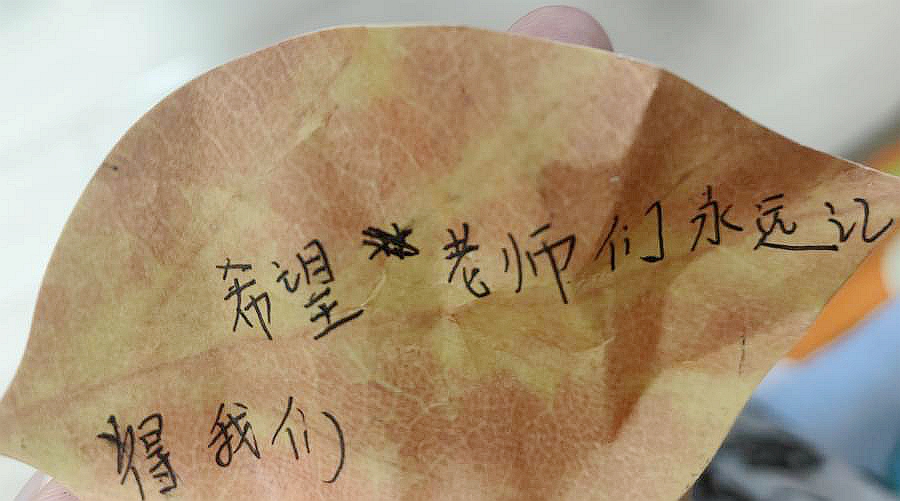 希望老师们永远记
得我们